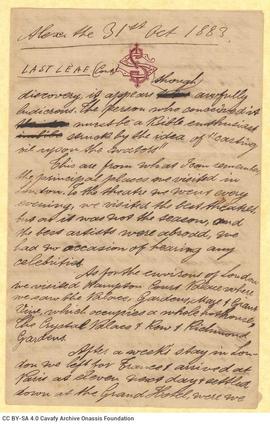 Alexa the 31st Oct 1883
LAST LEAF (Cont
though
discovery, it appears awfully
ludicrous. The person who conceived it
must be a Bible enthusiast
struck by the idea of "casting
oil upon the waters"
This are from what I can remember
the principal places we visited in
London. To the theatre we went every
evening, we visited the best theatres
but as it was not the season, and
the best artists were abroad, we
had no occasion of hearing any
celebrities.
As for the environs of London
we visited Hampton Court Palace where
we saw the Palace, Gardens, Maze & Giant
Vine, which occupies a whole hothouse,
The Crystal Palace & Kew & Richmond
Gardens.
After a week's stay in Lon-
don we left for France & arrived at
Paris at eleven next day & settled
down at the Grand Hotel, were we
CC BY-SA 4.0 Cavafy Archive Onassis Foundation